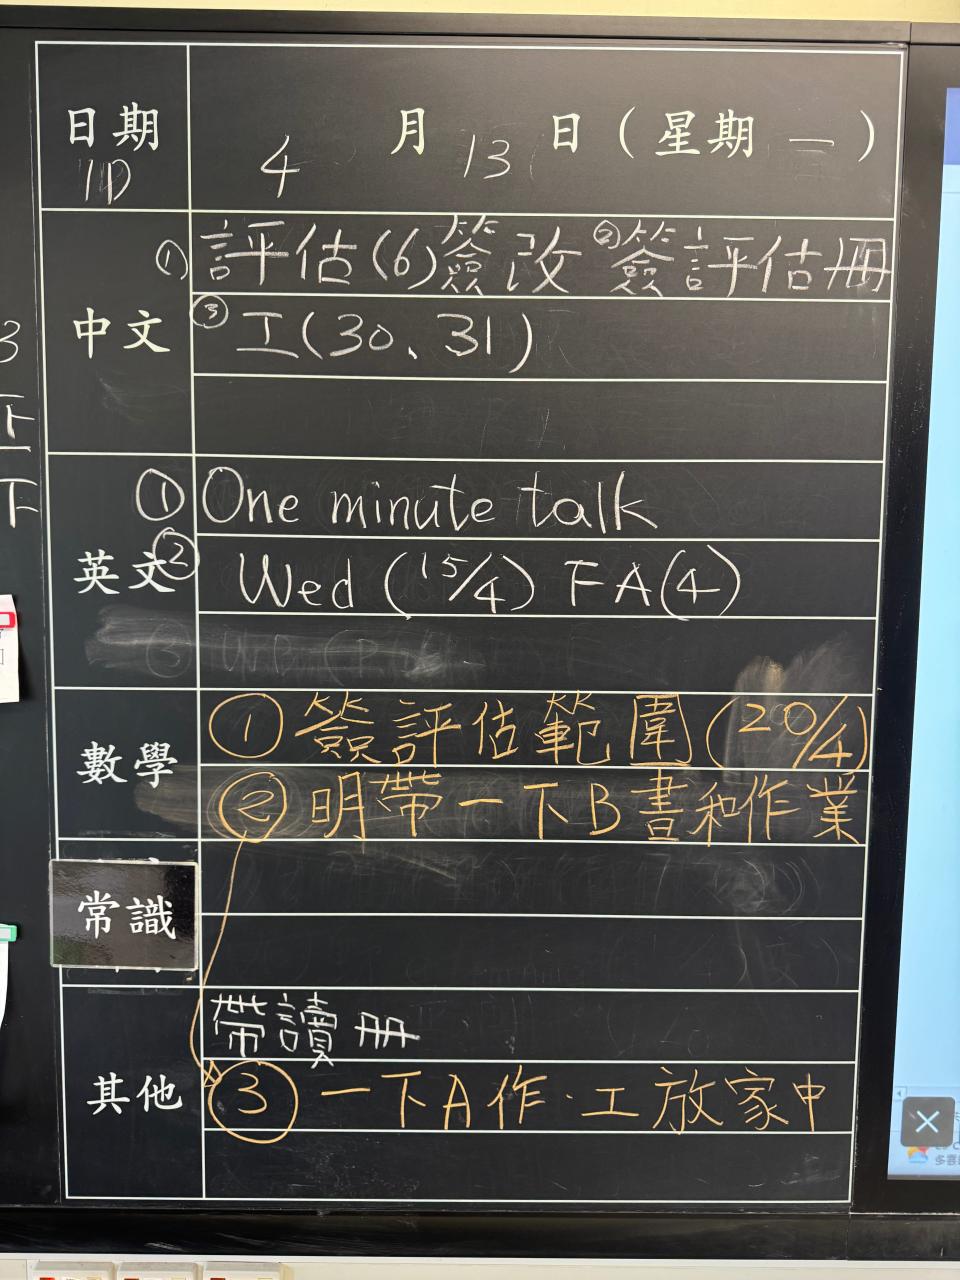 日期 4 月 13 日（星期 一 ）
1D
中文
① 評估(6)簽改 ②簽評估冊
③ 工(30、31)
英文
① One minute talk
② Wed (15/4) FA(4)
數學
① 簽評估範圍(20/4)
② 明帶一下B書和作業
常識
其他
帶讀冊
③ 一下A作.工放家中